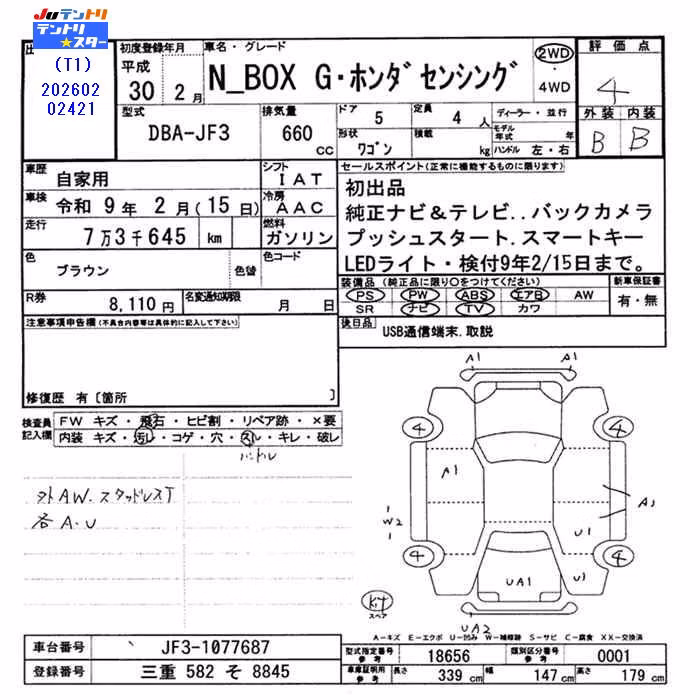 JUテントリ
テントリ★スター
(T1)
202602
02421
初度登録年月
平成
30 2月
車名・グレード
N_BOX G・ホンダセンシング
2WD
・
4WD
評価点
4
外装 内装
B B
型式
DBA-JF3
排気量
660 cc
ドア 5
定員 4 人
ディーラー・並行
形状 ワゴン
積載 kg
モデル年式 年
ハンドル 左・右
車歴
自家用
シフト
IAT
車検
令和 9年 2月(15日)
冷房
AAC
走行
7万3千645 km
燃料
ガソリン
色
ブラウン
色替
色コード
R券
8,110円
名変通知期限
月 日
セールスポイント(正常に機能するものに限ります)
初出品
純正ナビ&テレビ..バックカメラ
プッシュスタート.スマートキー
LEDライト・検付9年2/15日まで。
装備品 (純正品に限り○をつけてください)
PS PW ABS エアB AW
SR ナビ TV カワ
新車保証書
有・無
後日品
USB通信端末.取説
注意事項申告欄(不具合内容等は具体的に記入して下さい)
修復歴 有〔箇所 〕
検査員記入欄
FW キズ・飛石・ヒビ割・リペア跡・×要
内装 キズ・汚レ・コゲ・穴・スレ・キレ・破レ
ハンドル
外AW.スタッドレスT
各A.U
A1 A1
4 4
A1
A1
W2
U1
4 4
UA1
UA2
スペア
A-キズ E-エクボ U-凹み W-補修跡 S-サビ C-腐食 XX-交換済
車台番号 JF3-1077687
登録番号 三重 582 そ 8845
型式指定番号 参考 18656
類別区分番号 参考 0001
車庫証明用 参考 長さ 339 cm 幅 147 cm 高さ 179 cm